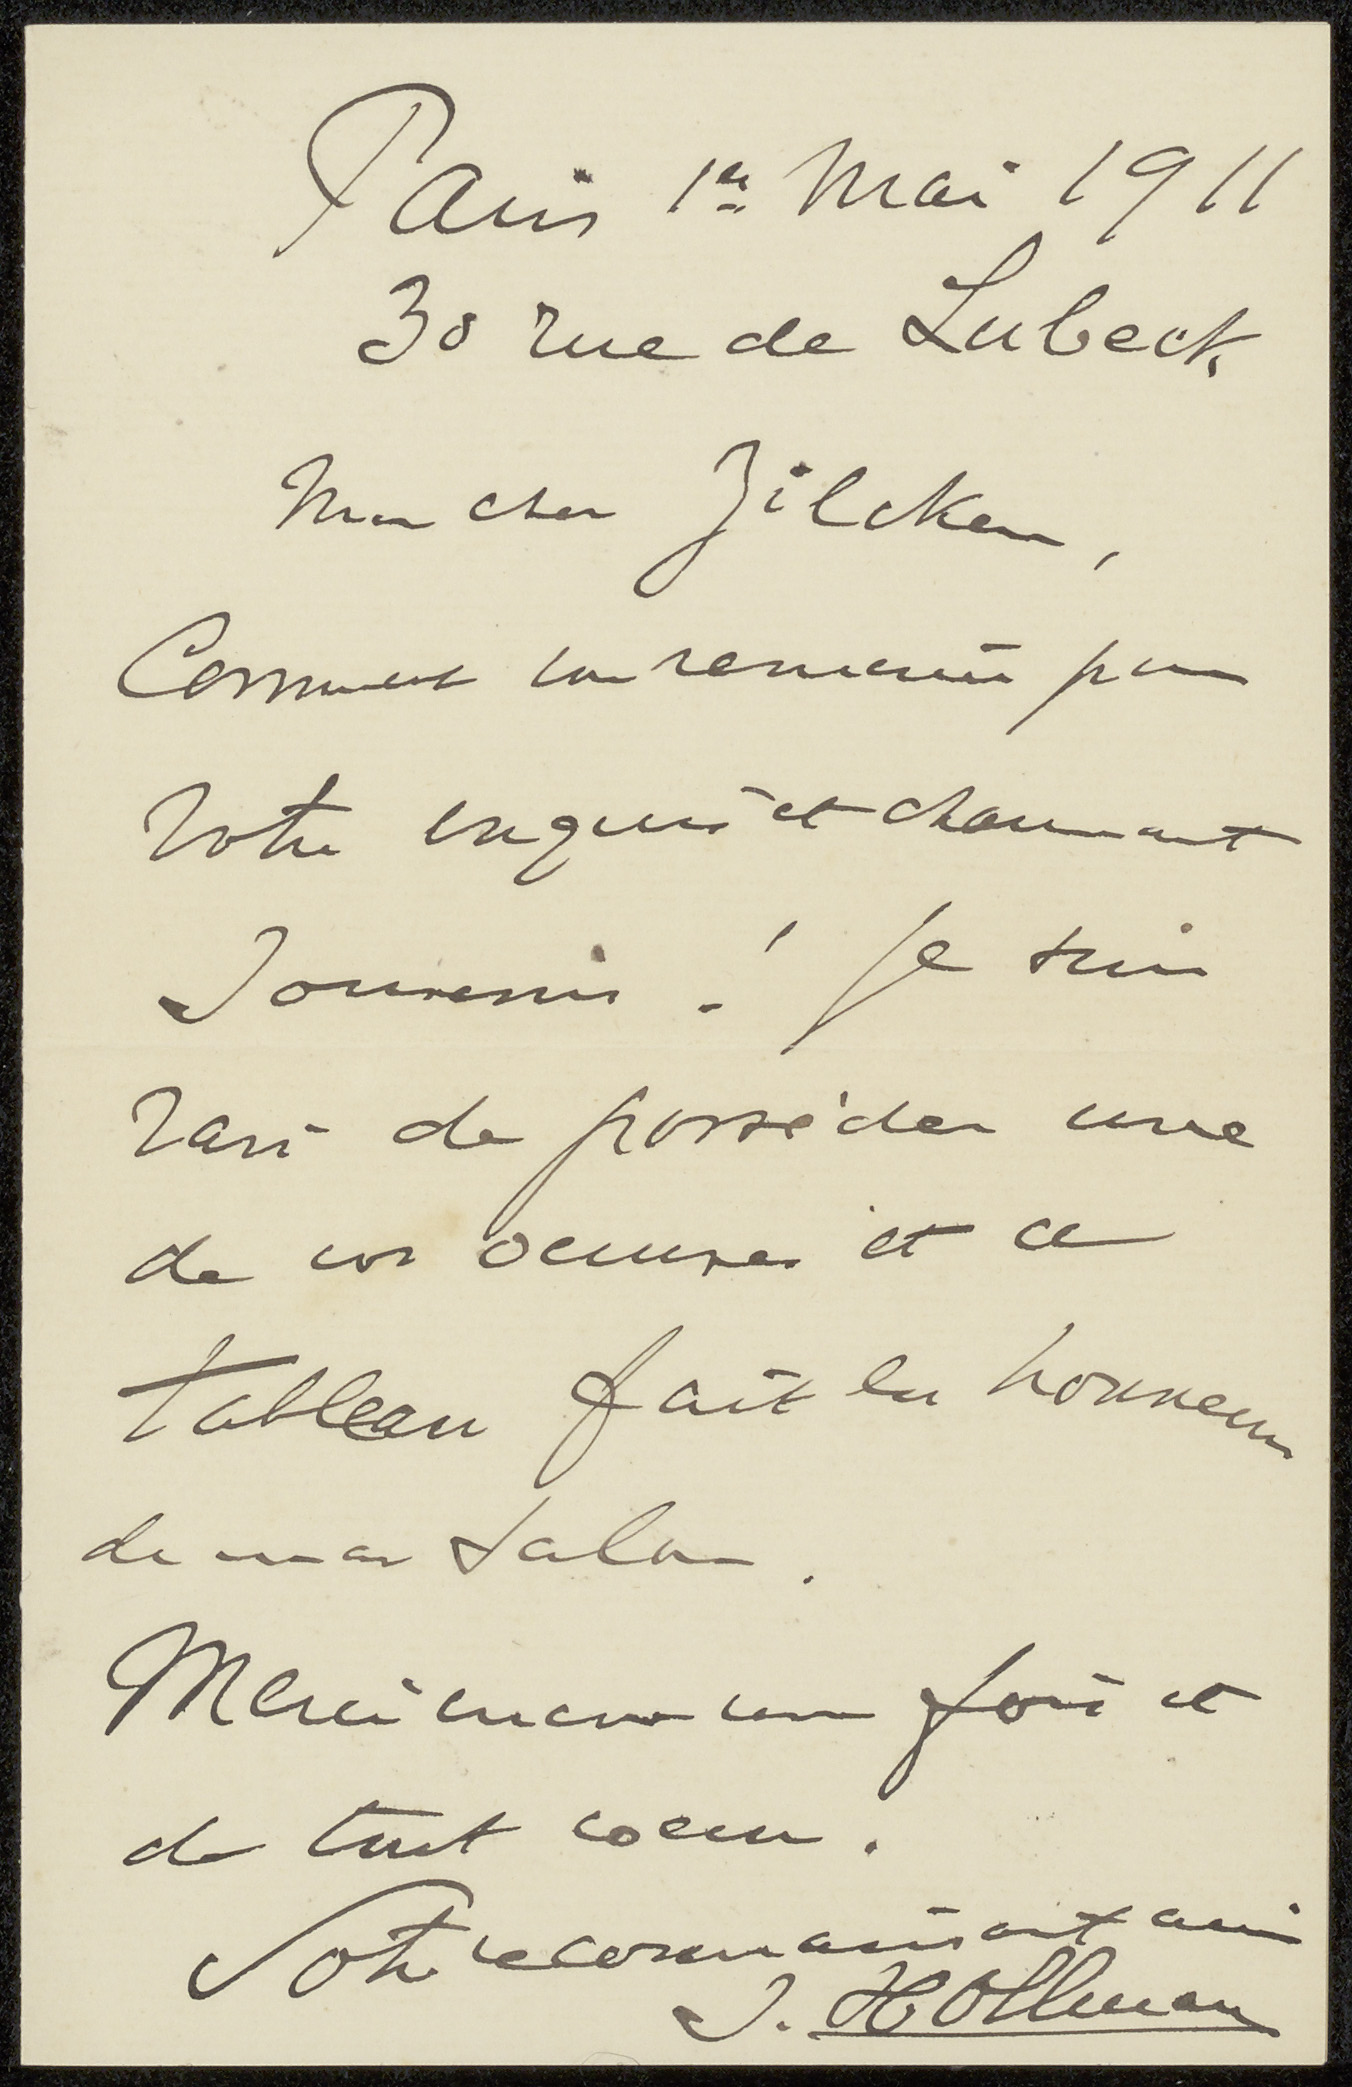 Paris 1er Mai 1911
30 rue de Lubeck
Mon cher Zilcken,
Comment vous remercier pour
Votre exquis et charmant
Souvenir ! Je suis
ravi de posséder une
de vos oeuvres et ce
tableau fait les honneurs
de mon Salon.
Merci encore une fois et
de tout coeur.
Votre reconnaissant ami
J. Hollman